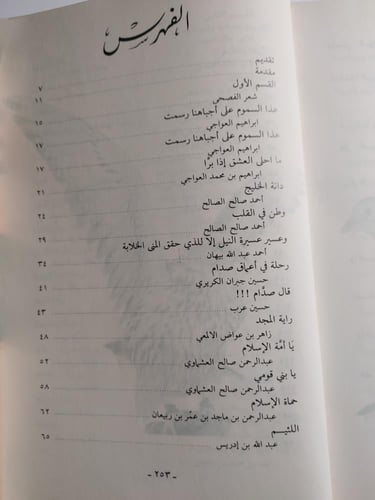 الفهرس
تقديم
مقدمة
القسم الأول ٧
شعر الفصحى ١١
هذا السموم على أجباهنا رسمت
ابراهيم العواجي ١٥
هذا السموم على أجباهنا رسمت
ابراهيم العواجي ١٧
ما احلى العشق إذا برًا
ابراهيم بن محمد العواجي ١٧
دانة الخليج ٢١
أحمد صالح الصالح
وطن في القلب ٢٤
أحمد صالح الصالح
وعسير عسيرة النيل إلا للذي حقق المنى الخلابة ٢٩
أحمد عبد الله بيهان
رحلة في أعماق صدام ٣٤
حسين جبران الكريري
قال صدَّام !!! ٤١
حسين عرب
راية المجد ٤٣
زاهر بن عواض الالمعي
يَا أمَّة الإسلام ٤٨
عبدالرحمن صالح العشماوي
يا بني قومي ٥٢
عبدالرحمن صالح العشماوي
حماة الإسلام ٥٨
عبدالرحمن بن ماجد بن عمَر بن ربيعان
اللئيـم ٦٢
عبد الله بن إدريس ٦٥
- ٢٥٣ -